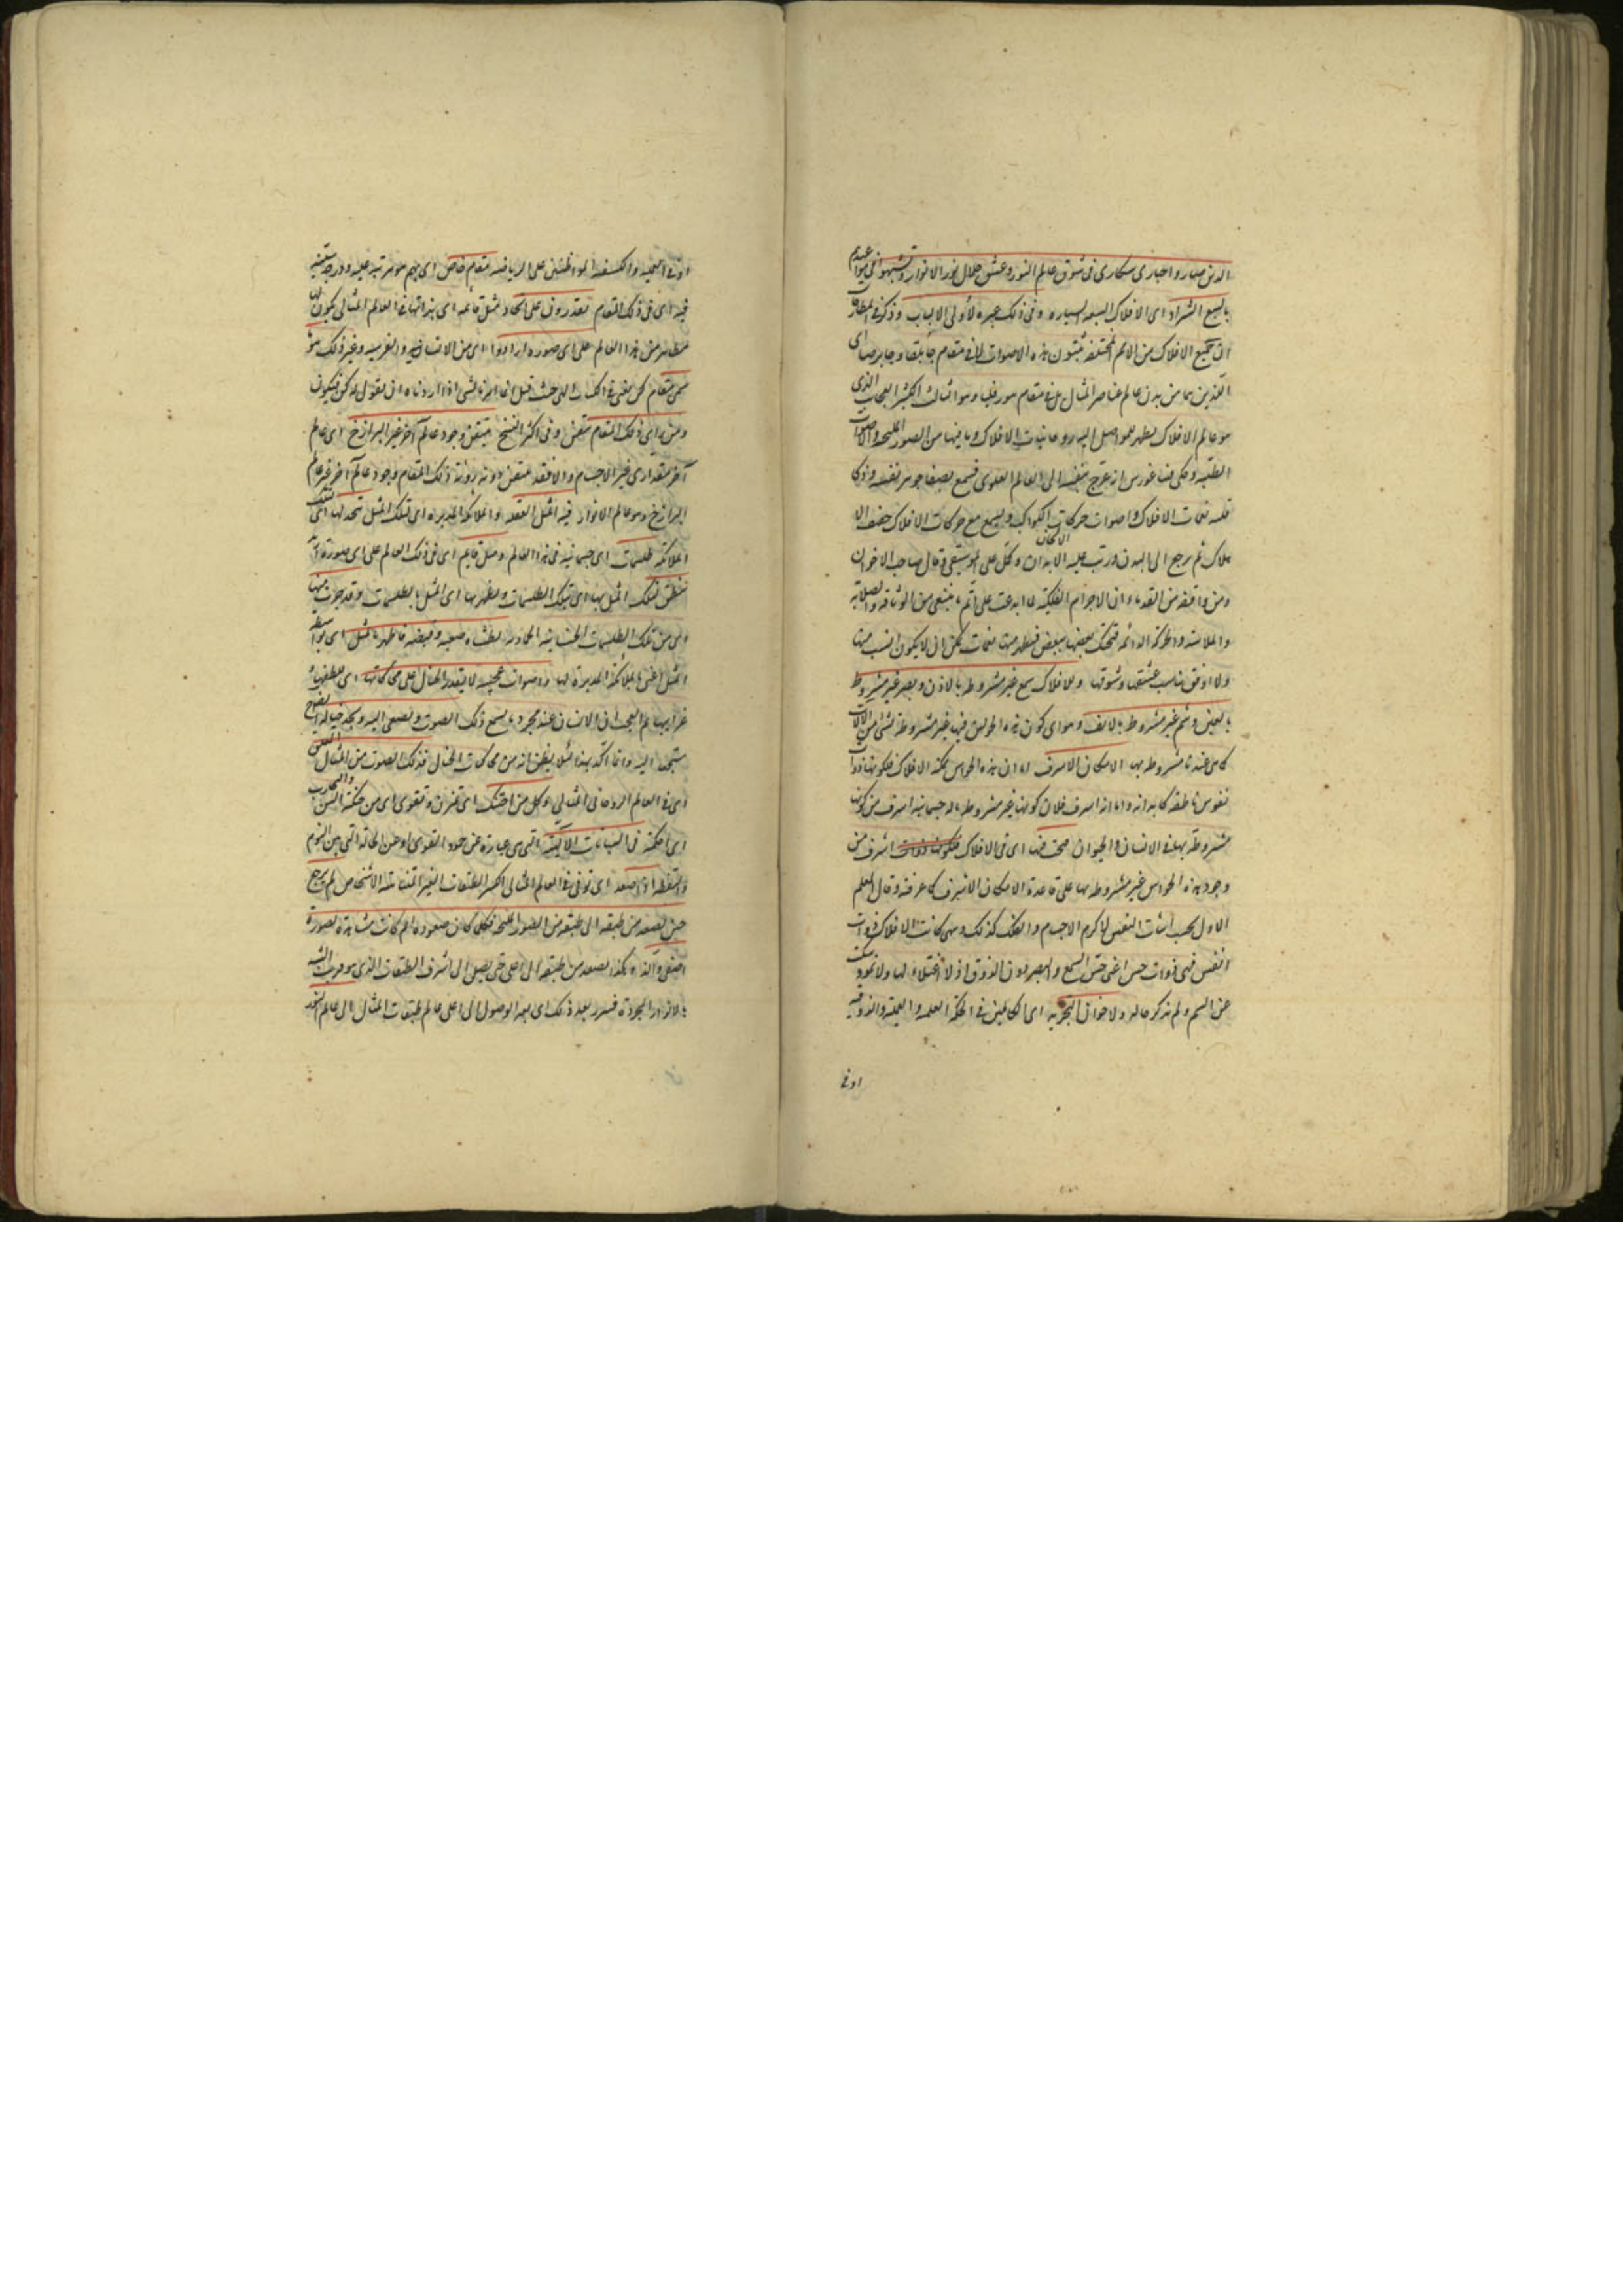 الذين صاروا حيارى سكارى فى شوق عالم النور وعشق جلال نور الانوار وتشبهوا فى مواجيدهم
بالسبع الشداد اى الافلاك السبعة السيارة وفى ذلك عبرة لأولى الالباب وذكر فى المطارحات
ان جميع الافلاك من الامم المختلفة يثبتون هذه الاصوات لا فى مقام جابلقا وجابرصا اى
اللذين هما من مدن عالم عناصر المثال بل فى مقام هورقليا وهو الثالث الكثير العجايب الذى
هو عالم الافلاك يظهر للواصل اليه روحانيات الافلاك وما فيها من الصور المليحة والاصوات
الطيبة وحكى فيثاغورس انه عرج بنفسه الى العالم العلوى فسمع بصفاء جوهر نفسه وذكاء
قلبه نغمات الافلاك واصوات حركات الكواكب وسمع مع حركات الافلاك خفيف الا
ملاك ثم رجع الى البدن ورتب عليه الالحان وكمل علم الموسيقى وقال صاحب الاخوان
ومن وافقه من القدماء ان الاجرام الفلكية لما ابدعت على اتم ما ينبغى من الوثاقة والصلابة
والملاسة والحركة الدائمة فتحتك بعضها ببعض فيظهر منها نغمات يمكن ان لا يكون انسب منها
ولا اوفق يناسب عشقها وشوقها وللافلاك سمع غير مشروط بالاذن وبصر غير مشروط
بالعين وشم غير مشروط بالانف وهو اى كون هذه الحواس فيها غير مشروطة بشئ من الآلات
كما هى عندنا مشروطة بها الامكان الاشرف اما ان هذه الحواس ممكنة الافلاك فلكونها ذوات
نفوس ناطقة كابداننا واما انه اشرف فلان كونها غير مشروطة بآلة جسمانية اشرف من كونها
مشروطة بها فى الانسان والحيوان فيجب فيها اى فى الافلاك اشرف من
وجود هذه الحواس غير مشروطة بها على قاعدة الامكان الاشرف كما عرفته وقال المعلم
الاول يجب اثبات النفس لاكرم الاجسام والفلك كذلك ومهما كانت الافلاك ذوات
انفس فهى ذوات حس اعنى حس السمع والبصر دون الذوق اذ لا اغتذاء لها ولا نمو وسكت
عن الشم ولم يذكر حاله ولاخوان التجريد اى الكاملين فى الحكمة العلمية والعملية والذوقية
اوفى
اوفى العملية والكشفية المواظبين على الرياضة مقام خاص اى لهم مرتبة علية ودرجة سنية
فيه اى فى ذلك المقام يقدرون على ايجاد مثل قائمة اى بذاتها فى العالم المثالى يكون لها
مظاهر من هذا العالم على اى صورة ارادوا اى من الانسانية والفرسية وغير ذلك وهو
سمى مقام كن يعنى فى الكتاب الالهى حيث قيل انما امرنا لشئ اذا اردناه ان نقول له كن فيكون
ومن رأى ذلك المقام تيقن وفى اكثر النسخ يتيقن وجود عالم آخر غير البرازخ اى عالم
آخر مقدارى غير الاجسام والا فقد يتيقن دونه رؤية ذلك المقام وجود عالم آخر غير عالم
البرازخ وهو عالم الانوار فيه المثل المعلقة والملائكة المدبرة اى لتلك المثل يتخذ لها اى لتلك
الملائكة طلسمات اى جسمانية فى هذا العالم ومثل قائمة اى فى ذلك العالم على اى صورة
تنطق تلك المثل بها اى بتلك الطلسمات وتظهر بها اى المثل بالطلسمات وقد جرت منها
اى من تلك الطلسمات الجسمانية الحادثة بطشات صعبة وقبضة قاهرة بالمثل اى بواسطة
المثل اعنى بالملائكة المدبرة لها واصوات عجيبة لا يقدر الخيال على محاكاتها اى للطفها و
غرابتها ثم العجب ان الانسان عند تجرد ما يسمع ذلك الصوت ويصغى اليه ويجد خياله ايضا
مستمعا اليه وانما اكد بهذا لئلا يظن انه من محاكات الخيال فذلك الصوت من المثال المعلق
اى فى العالم الروحانى المثالى وكل من احتنك اى تمرن وتقوى اى من حنكته السن والتجارب
اى احكمته فى السباتات الالهية التى هى عبارة عن خمود القوى او عن الحالة التى بين النوم
واليقظة اذا صعد اى ترقى فى العالم المثالى الكثير الطبقات الغير المتناهية الاشخاص لم يرجع
حتى يصعد من طبقة الى طبقة من الصور المليحة فكلما كان صعوده اتم كانت مشاهدته لصورة
اصفى والذ هكذا يصعد من طبقة الى اعلى حتى يصل الى اشرف الطبقات الذى هو قريب الشبه
بالانوار المجردة فيبرز بعد ذلك اى بعد الوصول الى اعلى عالم طبقات المثال الى عالم النور